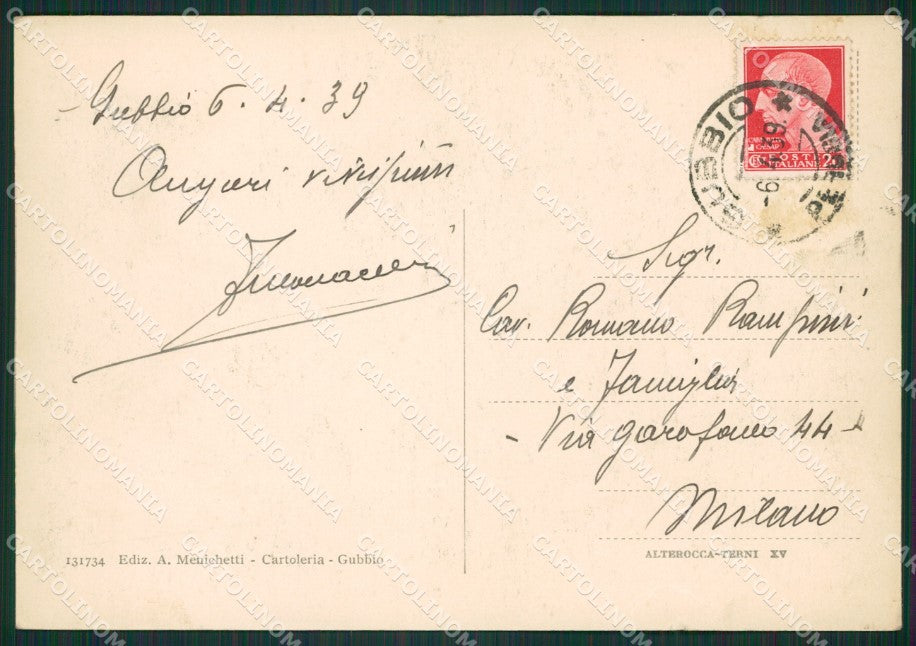 Gubbio 6.4.39
Auguri vivissimi
Sigr.
Cav. Romano Rampini
e Famiglia
- Via garofano 44 -
Milano
131734 Ediz. A. Menichetti - Cartoleria - Gubbio
ALTEROCCA-TERNI XV
GUBBIO *
-6.4.39.
POSTE
ITALIANE
CARTOLINOMANIA